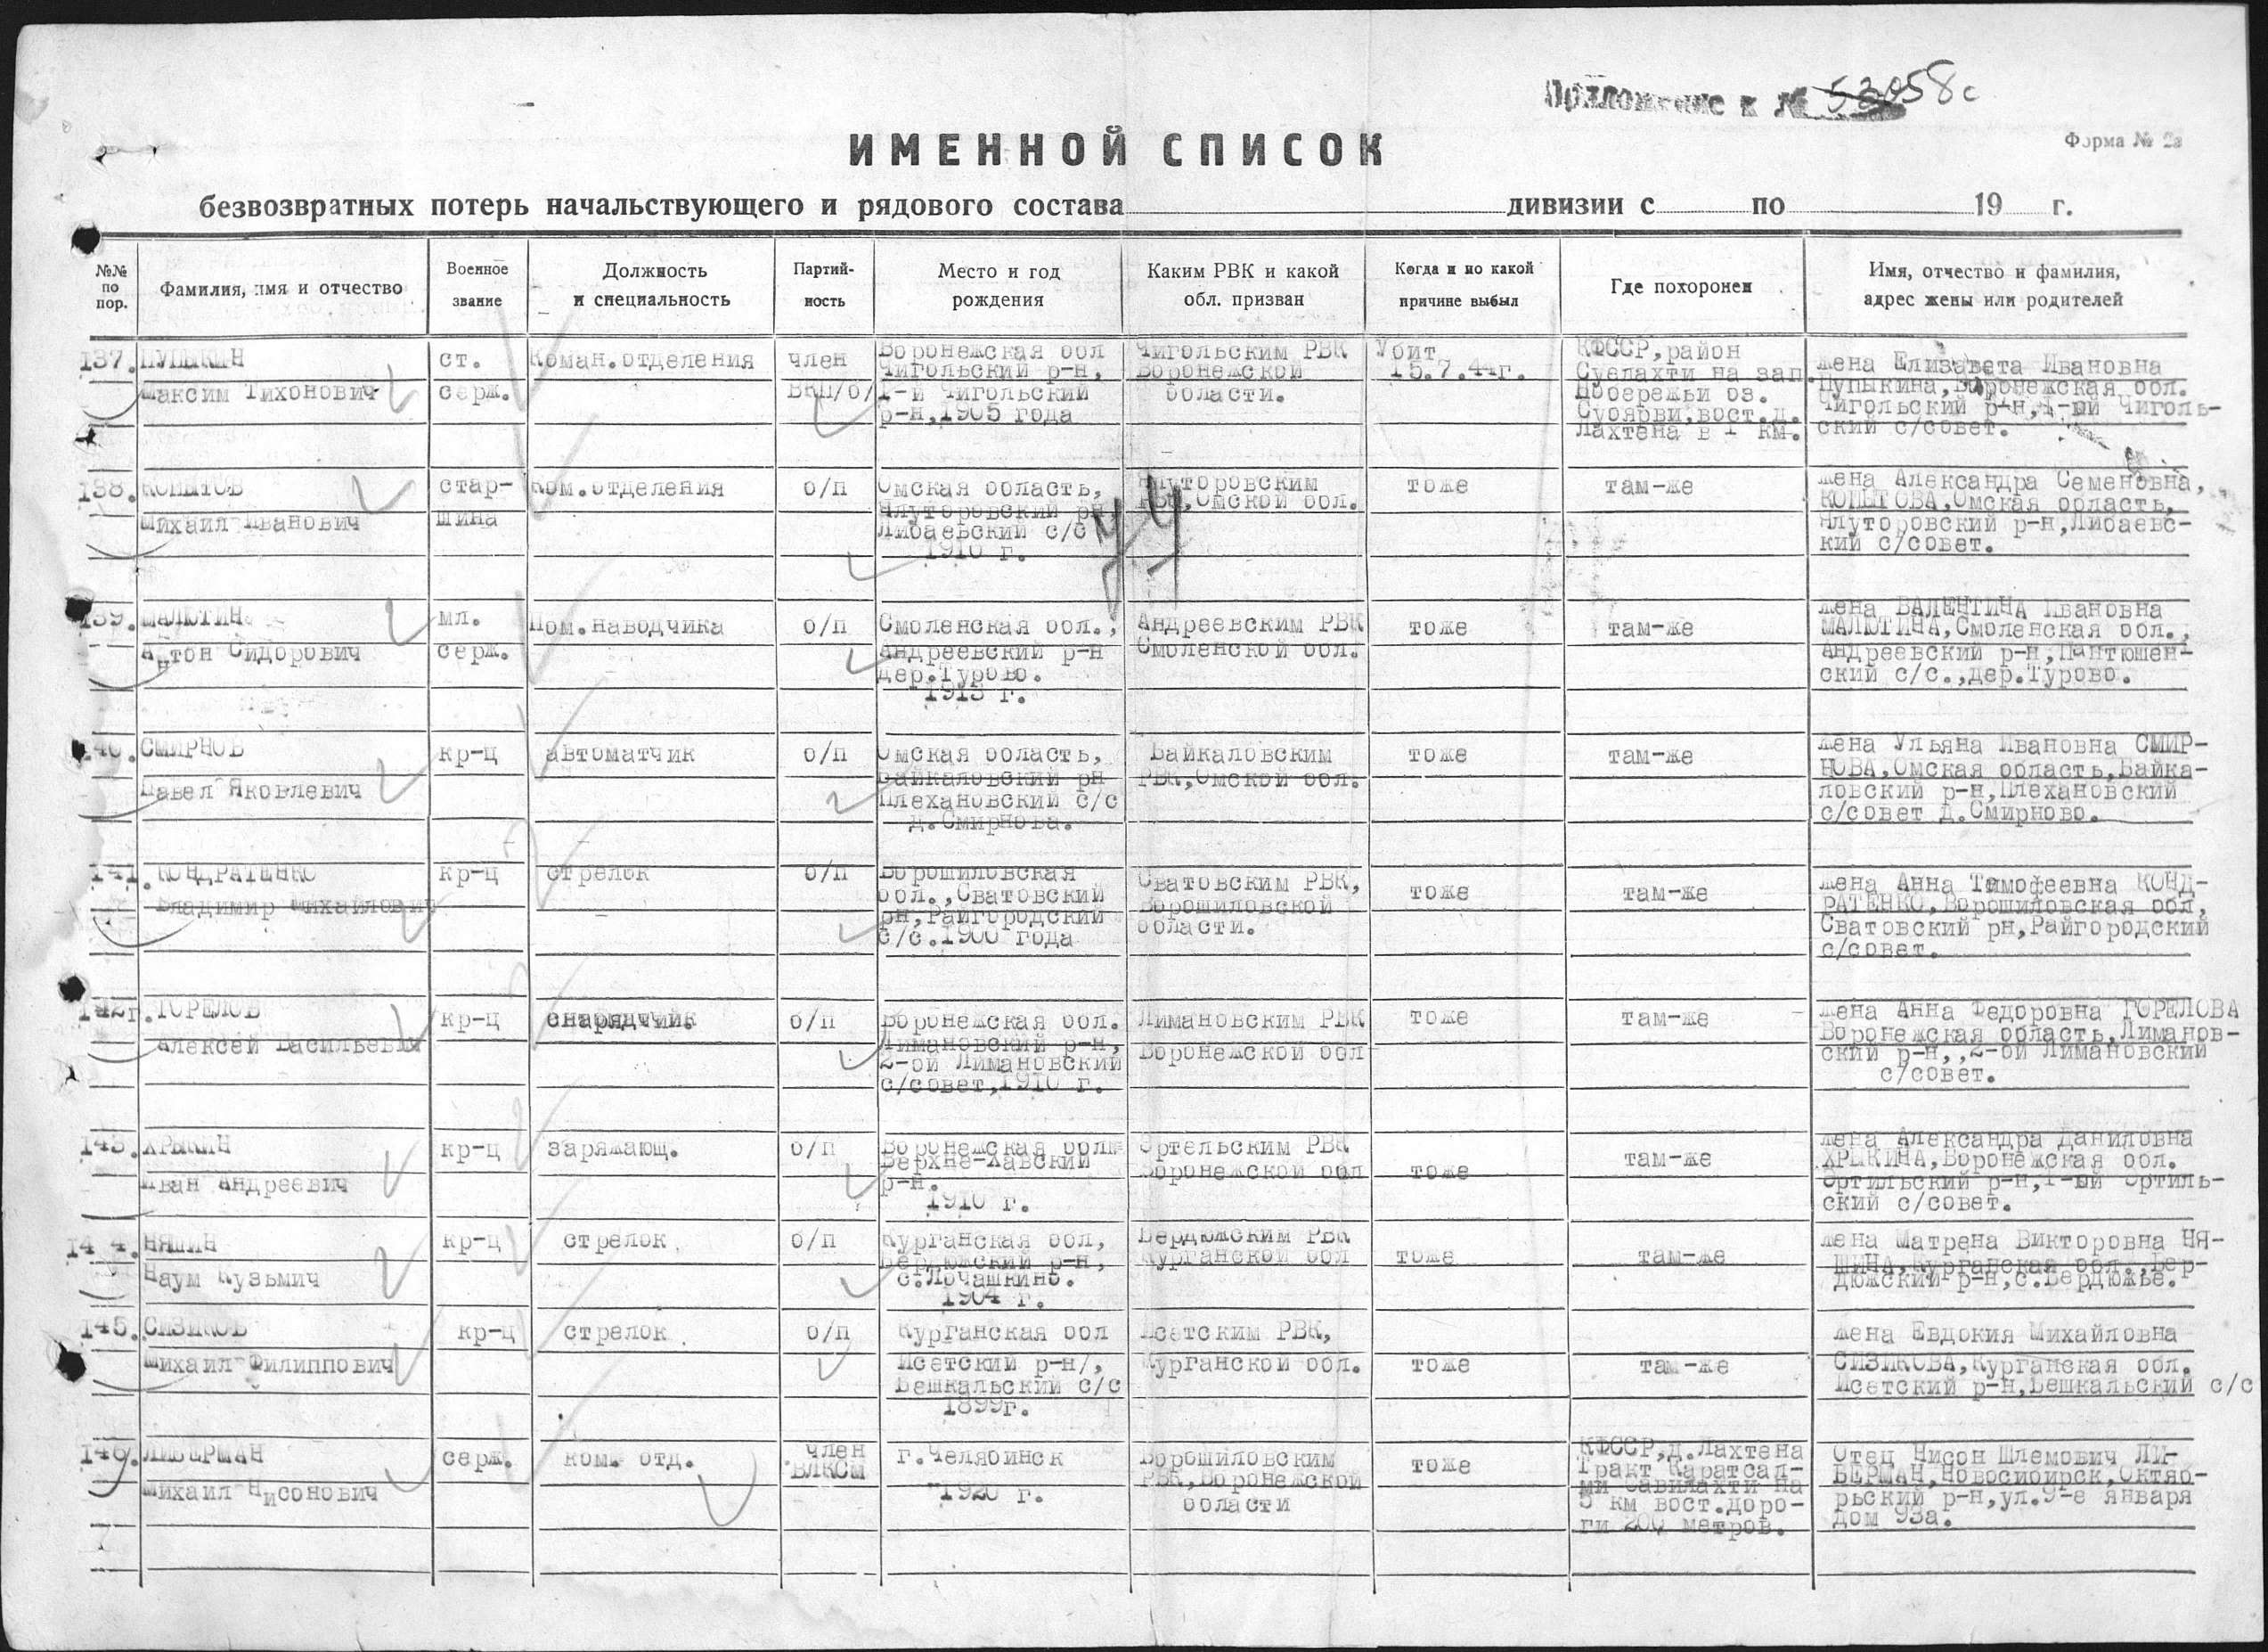 Приложение к № 53058с
Форма № 2а
ИМЕННОЙ СПИСОК
безвозвратных потерь начальствующего и рядового состава дивизии с по 19 г.
№№ по пор.
Фамилия, имя и отчество
Военное звание
Должность и специальность
Партий-
ность
Место и год рождения
Каким РВК и какой обл. призван
Когда и по какой причине выбыл
Где похоронен
Имя, отчество и фамилия, адрес жены или родителей
137.
Максим Тихонович
ст.
серж.
Коман.отделения
член
ВКП/б/
Воронежская обл
Чигольский р-н,
1-й Чигольский
р-н,1905 года
Чигольским РВК
Воронежской
области.
Убит
15.7.44г.
КФССР,район
Суелахти на зап.
побережьи оз.
Суоярви,вост.д.
Лахтена в 1 км.
жена Елизавета Ивановна
Пупыкина,Воронежская обл.
Чигольский р-н,1-ый Чиголь-
ский с/совет.
138. КОПЫТОВ
Михаил Иванович
стар-
шина
Ком.отделения
б/п
Омская область,
Ялуторовский рн
Либаевский с/с
1910 г.
Ялуторовским
РВК,Омской обл.
тоже
там-же
жена Александра Семеновна,
КОПЫТОВА,Омская область,
Ялуторовский р-н,Либаевс-
кий с/совет.
139. МАЛЮТИН
Антон Сидорович
мл.
серж.
Пом.наводчика
б/п
Смоленская обл.,
Андреевский р-н
дер.Турово.
1913 г.
Андреевским РВК
Смоленской обл.
тоже
там-же
жена ВАЛЕНТИНА Ивановна
МАЛЮТИНА,Смоленская обл.,
Андреевский р-н,Пантюшен-
ский с/с.,дер.Турово.
140. СМИРНОВ
Павел Яковлевич
кр-ц
автоматчик
б/п
Омская область,
Байкаловский рн
Плехановский с/с
д.Смирнова.
Байкаловским
РВК,Омской обл.
тоже
там-же
жена Ульяна Ивановна СМИР-
НОВА,Омская область,Байка-
ловский р-н,Плехановский
с/совет д.Смирново.
141. КОНДРАТЕНКО
Владимир Михайлович
кр-ц
стрелок
б/п
Ворошиловская
обл.,Сватовский
рн,Райгородский
с/с.1900 года
Сватовским РВК,
Ворошиловской
области.
тоже
там-же
жена Анна Тимофеевна КОНД-
РАТЕНКО,Ворошиловская обл,
Сватовский рн,Райгородский
с/совет.
142. ГОРЕЛОВ
Алексей Васильевич
кр-ц
б/п
Воронежская обл.
Лимановский р-н,
2-ой Лимановский
с/совет,1910 г.
Лимановским РВК
Воронежской обл
тоже
там-же
жена Анна Федоровна ГОРЕЛОВА
Воронежская область,Лиманов-
ский р-н,,2-ой Лимановский
с/совет.
143. ХРЫКИН
Иван Андреевич
кр-ц
заряжающ.
б/п
Воронежская обл
Верхне-Хавский
р-н.
1910 г.
Эртельским РВК
Воронежской обл
тоже
там-же
жена Александра Даниловна
ХРЫКИНА,Воронежская обл.
Эртильский р-н,1-ый Эртиль-
ский с/совет.
144. НЯШИН
Наум Кузьмич
кр-ц
стрелок
б/п
Курганская обл,
Бердюжский р-н,
с.Лочашкино.
1904 г.
Бердюжским РВК
Курганской обл
тоже
там-же
жена Матрена Викторовна НЯ-
ШИНА,Курганская обл.,Бер-
дюжский р-н,с.Бердюжье.
145. СИЗИКОВ
Михаил Филиппович
кр-ц
стрелок
б/п
Курганская обл
Исетский р-н/,
Бешкальский с/с
1899г.
Исетским РВК,
Курганской обл.
тоже
там-же
жена Евдокия Михайловна
СИЗИКОВА,Курганская обл.
Исетский р-н,Бешкальский с/с
146. ЛИБЕРМАН
Михаил Нисонович
серж.
ком. отд.
член
ВЛКСМ
г.Челябинск
1920 г.
Ворошиловским
РВК,Воронежской
области
тоже
КФССР,д.Лахтена
Тракт Каратсал-
ми Савилахти на
5 км вост.доро-
ги 200 метров.
Отец Нисон Шлемович ЛИ-
БЕРМАН,Новосибирск,Октяб-
рьский р-н,ул.9-е января
дом 93а.